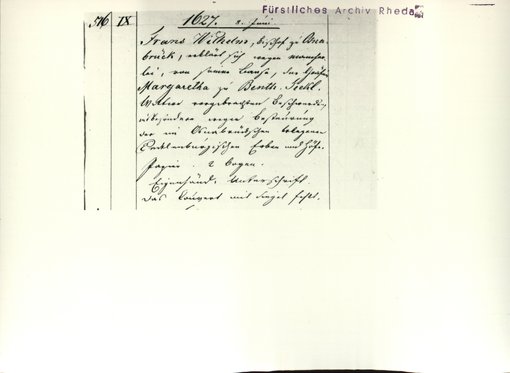 Fürstliches Archiv Rheda
576 IX. 1627. 8. Juni.
Franz Wilhelm, Bischof zu Osna-
brück, erklärt sich wegen mancher-
lei, von seiner Base, der Gräfin
Margaretha zu Benth. Teckl.
Wittwe vorgebrachten, Beschwerden,
insbesondere wegen Besteurung
der im Osnabrückschen belegenen
Tecklenburgischen Erben und Höfe.
Papier. 2 Bogen.
Eigenhänd. Unterschrift
Das Couvert mit Siegel fehlt.